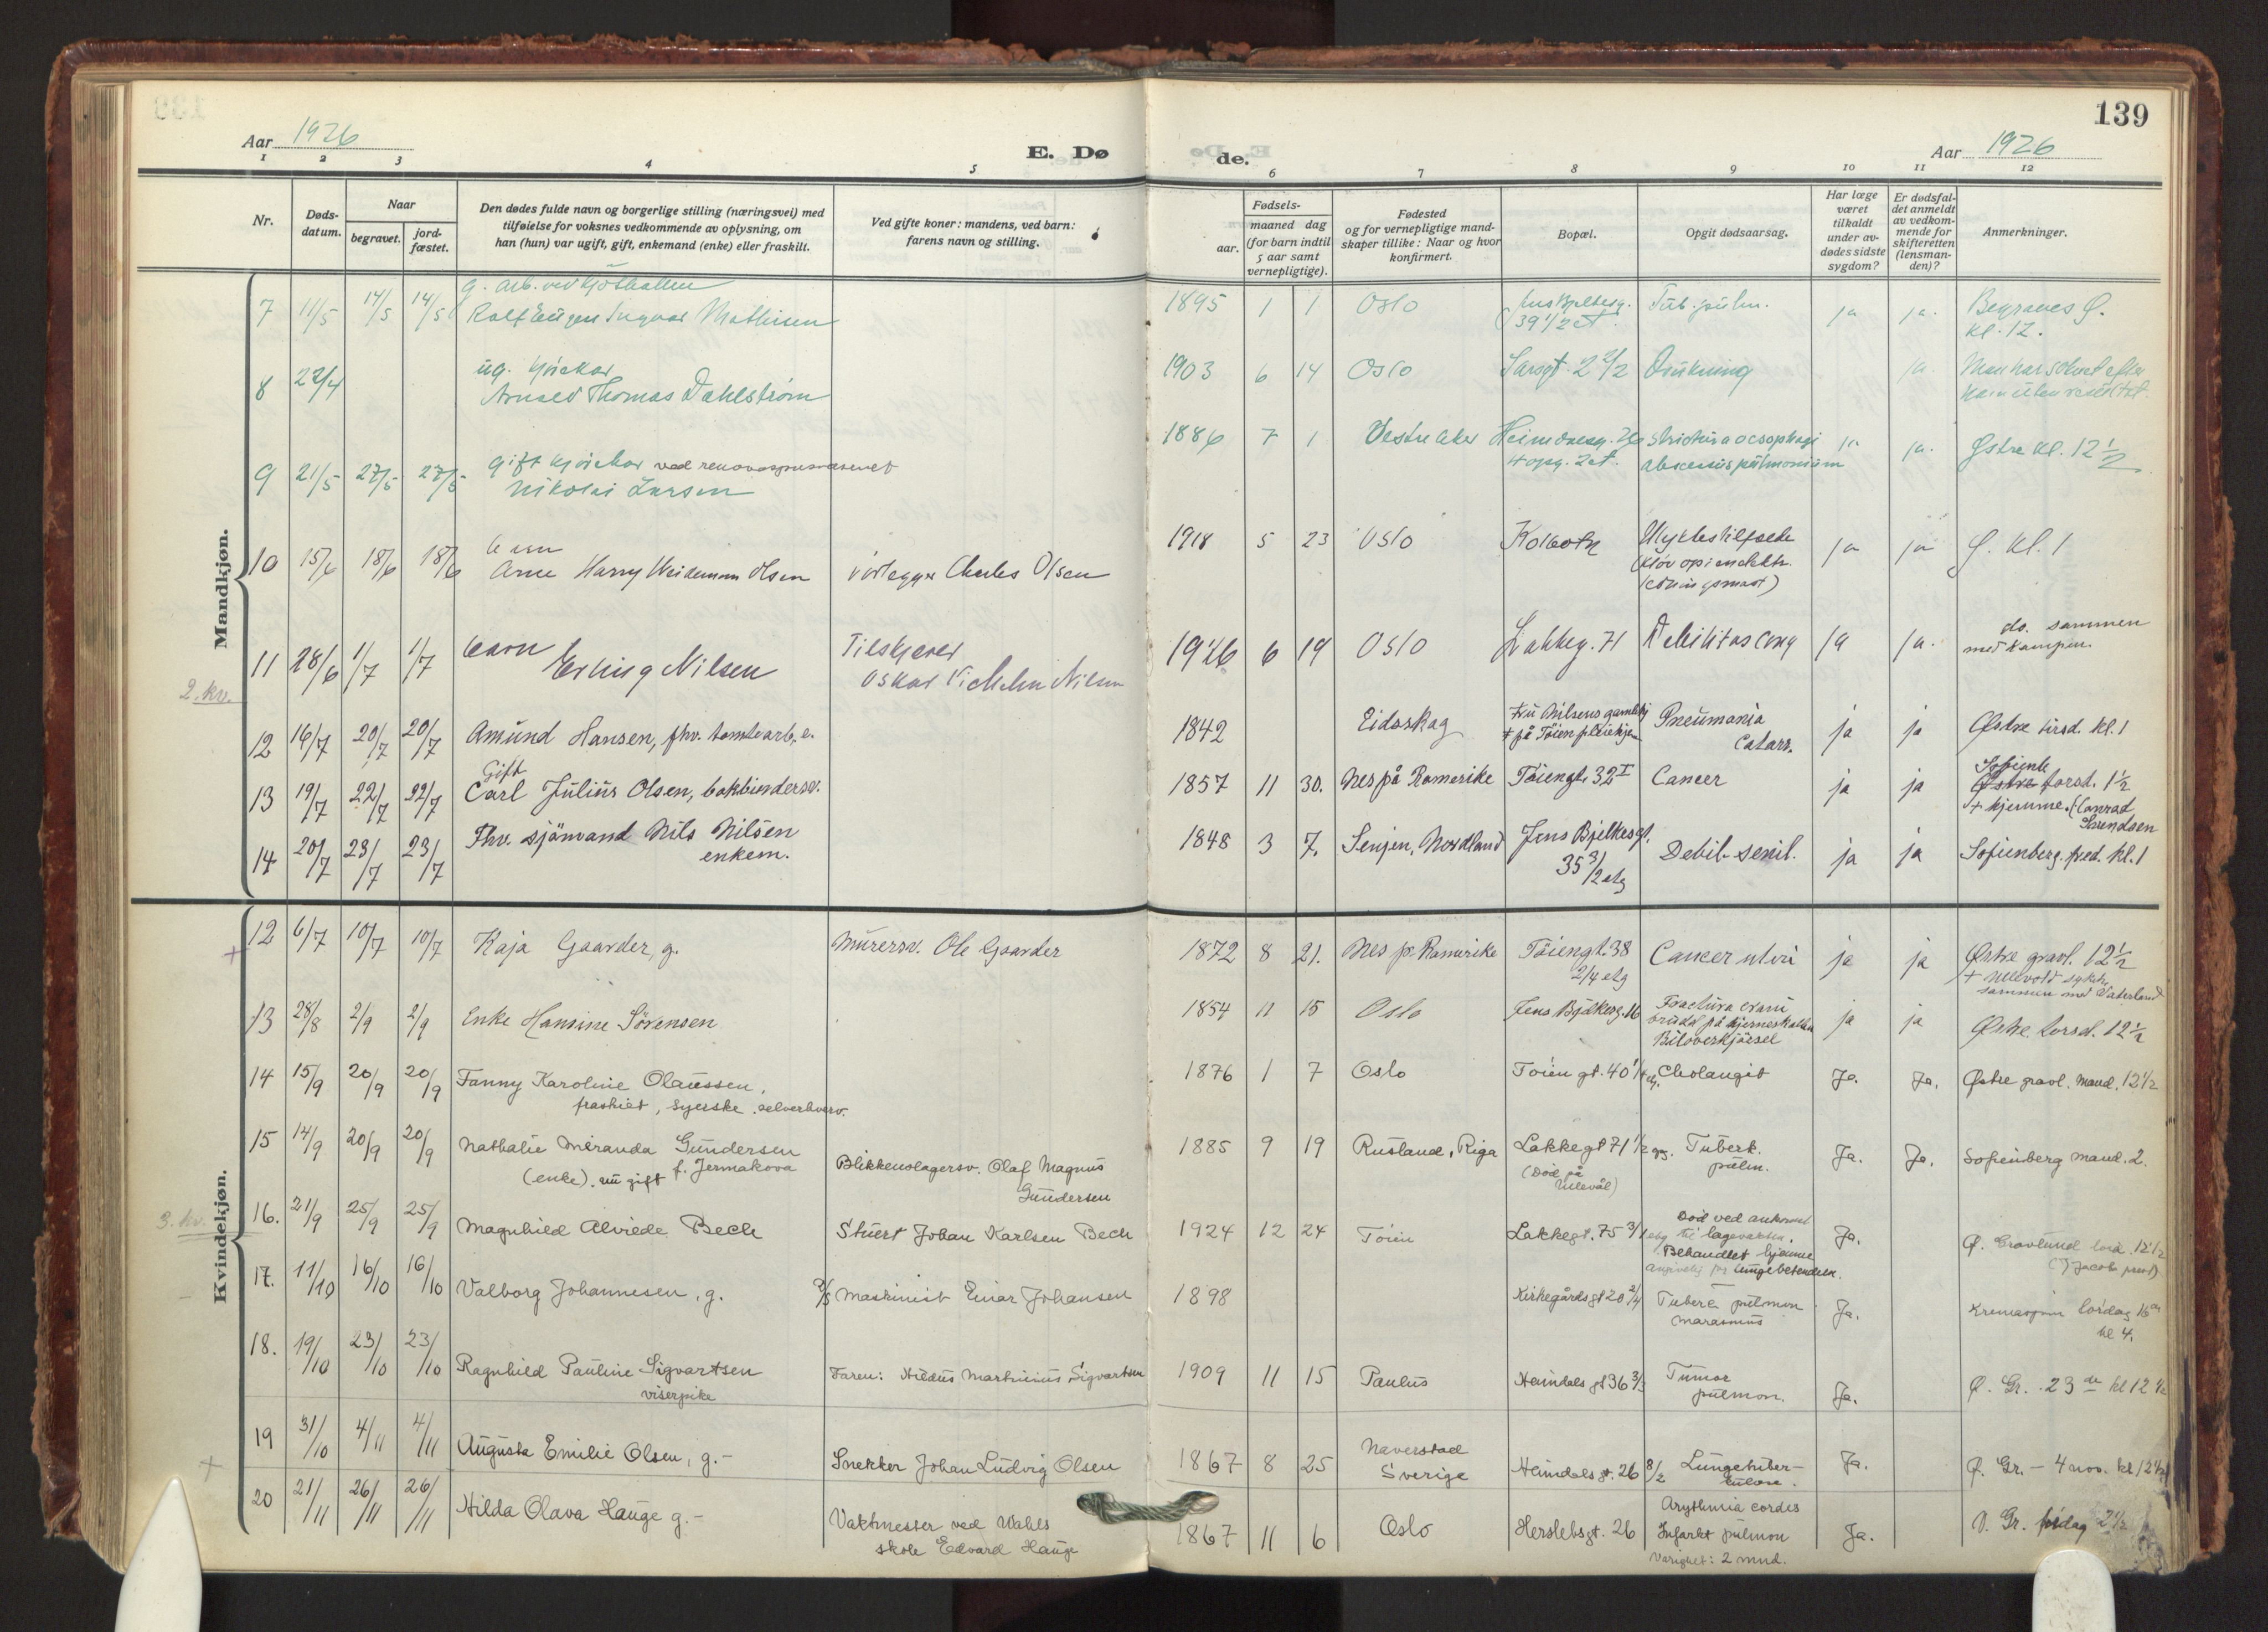 139
Aar 1926
E. Dø
de.
Aar 1926
1 2 3 4 5 6 7 8 9 10 11 12
Nr.
Døds-
datum.
Naar
begravet.
jord-
fæstet.
Den dødes fulde navn og borgerlige stilling (næringsvei) med
tilføielse for voksnes vedkommende av oplysning, om
han (hun) var ugift, gift, enkemand (enke) eller fraskilt.
Ved gifte koner: mandens, ved barn:
farens navn og stilling.
Fødsels-
aar.
maaned dag
(for barn indtil
5 aar samt
vernepligtige).
Fødested
og for vernepligtige mand-
skaper tillike: Naar og hvor
konfirmert.
Bopæl.
Opgit dødsaarsag.
Har læge
været
tilkaldt
under av-
dødes sidste
sygdom?
Er dødsfal-
det anmeldt
av vedkom-
mende for
skifteretten
(lensman-
den)?
Anmerkninger.
Mandkjøn.
7 11/5 14/5 14/5
g. arb. ved Kjøthallen
Rolf Eugen Ingvar Mathisen
1895 1 1 Oslo
39 1/2 et.
Tub. pulm.
ja ja.
Begraves Ø.
kl. 12.
8 22/4
ug. kjørekar
Arnold Thomas Dahlstrøm
1903 6 14 Oslo Sarsgt. 2 2/2 Drukning ja.
Man har søkt efter
ham uten resultat.
9 21/5 27/5 27/5
gift kjørekar ved renovasjonsvesenet
Nikolai Larsen
1886 7 1 Vestre Aker
Heimdalsg. 26
4 opg. 2 et.
strictura oesophagi
abscessus pulmonium
ja ja. Østre kl. 12 1/2
10 15/6 18/6 18/6
barn
Arne Harry Weidemann Olsen
rørlegger Charles Olsen
1918 5 23 Oslo Kolbotn
Ulykkestilfælde
(kløv op i en elektr.
ledningsmast)
ja ja Ø. kl. 1
2. kv.
11 28/6 1/7 1/7
barn
Erling Nilsen
Tilskjærer
Oskar Vilhelm Nilsen
1926 6 19 Oslo Lakkeg. 71 Debilitas cong ja ja.
do. sammen
med Kampen.
12 16/7 20/7 20/7
Amund Hansen, fhv. tomtearb. e.
1842 Eidskog
Fru Nilsens gamlehj
+ på Tøien pleiehje
Pneumonia
Catarr.
ja ja Østre tirsd. kl. 1
13 19/7 22/7 22/7
Gift
Carl Julius Olsen, bokbindersv.
1857 11 30. Nes på Romerike Tøiengt. 32 I Cancer ja ja
Sofienb
Østre torsd. 1 1/2
+ hjemme. (Conrad
Svendsen
14 20/7 23/7 23/7
Fhv. sjømand Nils Nilsen
enkem.
1848 3 7. Senjen, Nordland
Jens Bjelkesgt.
35 3/2 etg
Debil. senil. ja ja Sofienberg. fred. kl. 1
Kvindekjøn.
+
12 6/7 10/7 10/7 Kaja Gaarder, g. Murersv. Ole Gaarder
1872 8 21. Nes p. Romerike
Tøiengt. 38
2/4 etg
Cancer uteri ja ja
Østre gravl. 12 1/2
+ Ullevold sykeh.
sammen med Vaterland
13 28/8 2/9 2/9 Enke Hansine Sørensen
1854 11 15 Oslo Jens Bjelkesg. 16
Fractura cranii
brudd på hjerneskallen
Biloverkjørsel
ja ja Østre torsd. 12 1/2
14 15/9 20/9 20/9
Fanny Karoline Olaussen,
fraskilt, syerske. selverhverv.
1876 1 7 Oslo Tøien gt. 40 1/4 etg. Cholangit Ja. Ja. Østre gravl. mand. 12 1/2
15 14/9 20/9 20/9
Nathalie Miranda Gundersen
(enke). nu gift f. Jermakova
Blikkenslagersv. Olaf Magnus
Gundersen
1885 9 19 Rusland, Riga
Lakkegt 71 1/2 og.
(Død på
Ullevål)
Tuberk.
pulm.
Ja. Ja. Sofienberg mand. 2.
3. kv.
16. 21/9 25/9 25/9 Magnhild Alvilde Bech Stuert Johan Karlsen Bech
1924 12 24 Tøien Lakkegt. 75 3/1 etg
Død ved ankomst
til lægevakten.
Behandlet hjemme
angivelig for lungebetendelse.
Ja.
Ø. Gravlund lørd. 12 1/2
17. 11/10 16/10 16/10 Valborg Johannesen, g. Maskinist Einar Johansen
1898 Kirkegårdsgt 20 2/4
Tuberk. pulmon
marasmus
Ja.
Kremasjon lørdag 16de
kl 4.
18. 19/10 23/10 23/10
Ragnhild Pauline Sigvartsen
viserpike
Faren: Hildus Martinius Sigvartsen
1909 11 15 Paulus Heimdalsgt 36 3/3
Tumor
pulmon.
Ja. Ø. Gr. 23de kl 12 1/2
19 31/10 4/11 4/11 Augusta Emilie Olsen, g.- Snekker Johan Ludvig Olsen
1867 8 25
Naverstad
Sverige
Heimdalsgt. 26 8/2
Lungetuber-
kulose.
Ja. Ø. Gr. - 4 nov. kl 12 1/2
+
20 21/11 26/11 26/11 Hilda Olava Hauge g.-
Vaktmester ved Wahls
skole Edvard Hauge
1867 11 6 Oslo Herslebsgt. 26
Arythmia cordis
Infarkt pulmon
Varighet: 2 mnd.
Ja. V. Gr. fredag 2 1/2